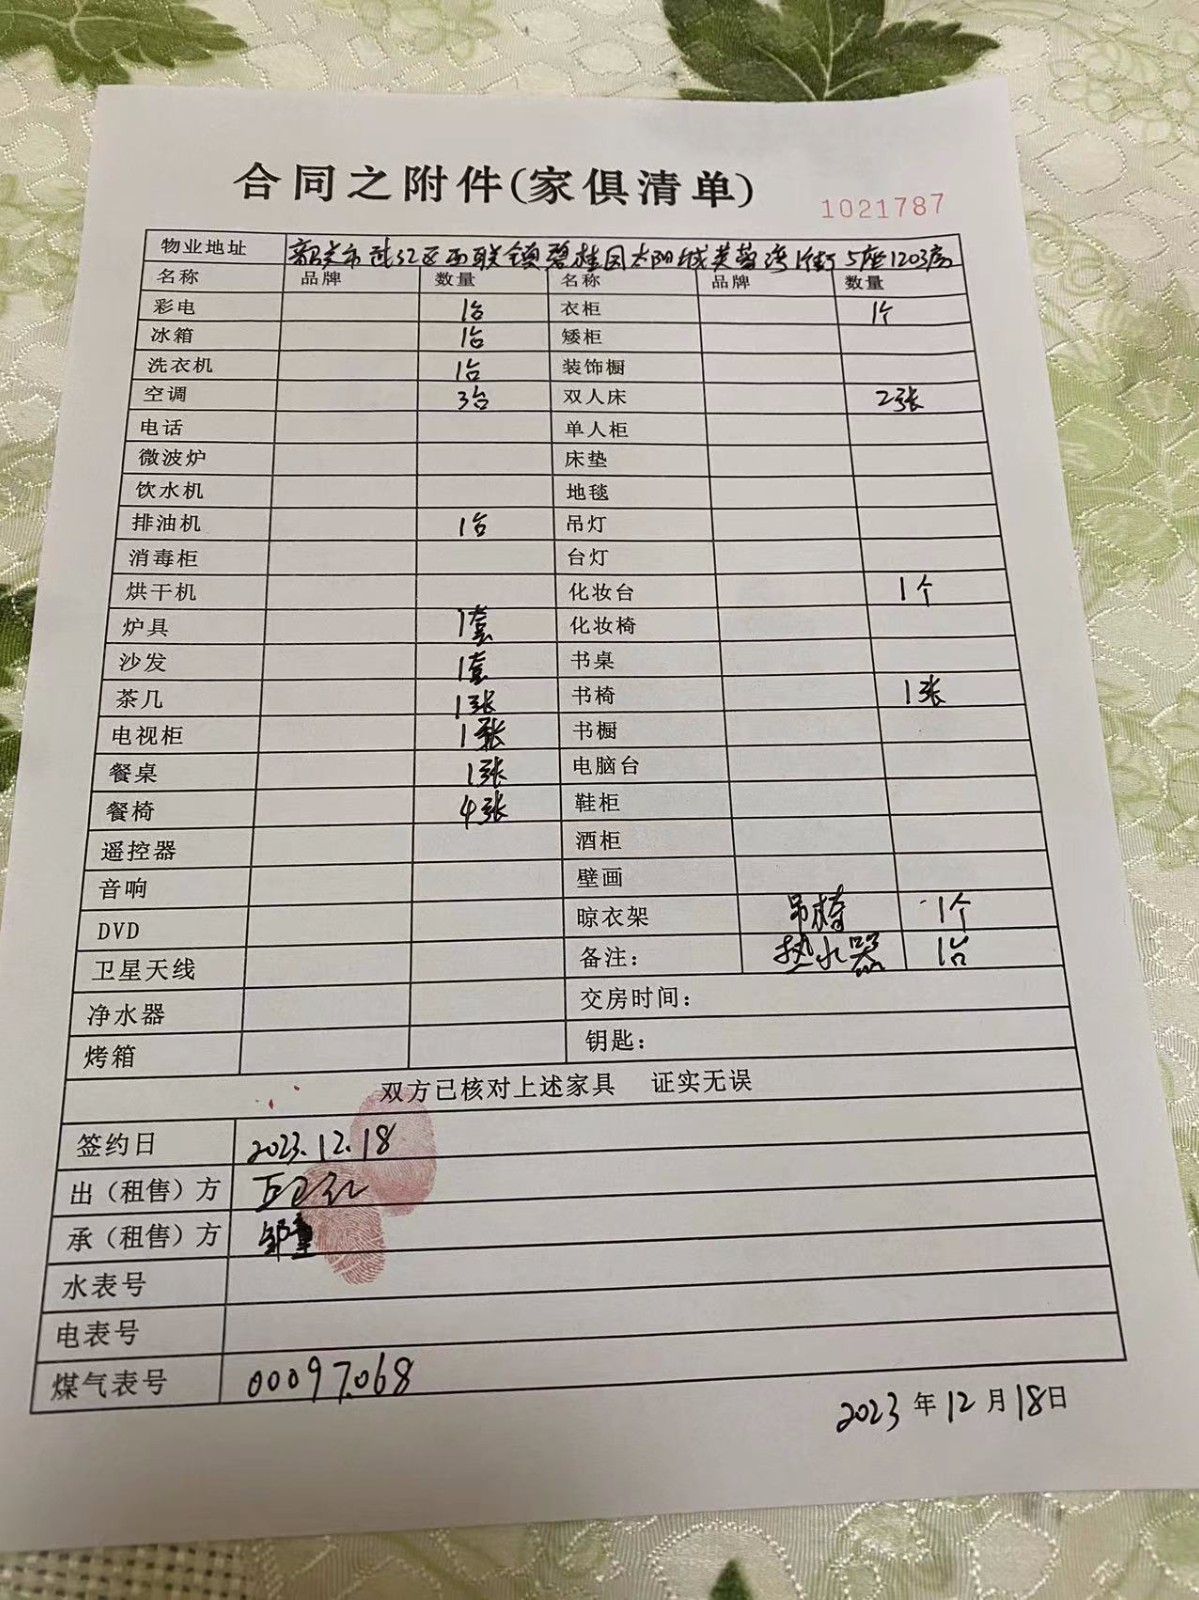 合同之附件(家俱清单)
1021787
物业地址 韶关市武江区西联镇碧桂园太阳城芙蓉湾1街5座1203房
名称 品牌 数量 名称 品牌 数量
彩电 1台 衣柜 1个
冰箱 1台 矮柜
洗衣机 1台 装饰橱
空调 3台 双人床 2张
电话 单人柜
微波炉 床垫
饮水机 地毯
排油机 1台 吊灯
消毒柜 台灯
烘干机 化妆台 1个
炉具 1套 化妆椅
沙发 1套 书桌
茶几 1张 书椅 1张
电视柜 1张 书橱
餐桌 1张 电脑台
餐椅 4张 鞋柜
遥控器 酒柜
音响 壁画
DVD 晾衣架 吊椅 1个
卫星天线 备注: 热水器 1台
净水器 交房时间:
烤箱 钥匙:
双方已核对上述家具 证实无误
签约日 2023.12.18
出（租售）方
承（租售）方
水表号
电表号
煤气表号 00097.068
2023年12月18日